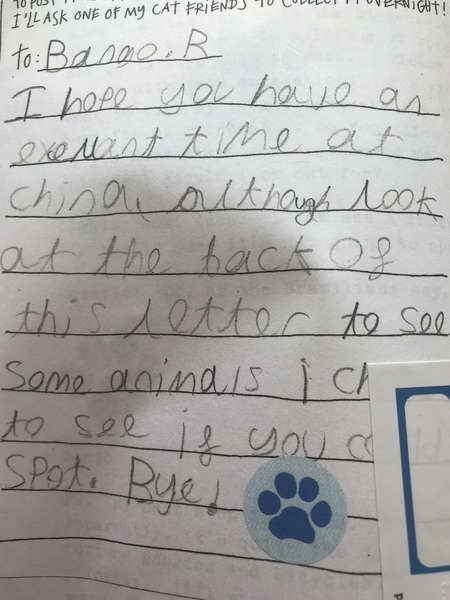 I'LL ASK ONE OF MY CAT FRIENDS TO COLLECT IT OVERNIGHT!
to: Bango.R
I hope you have an
exellant time at
china, although look
at the back of
this letter to see
some animals i ch
to see if you c
spot. Bye!